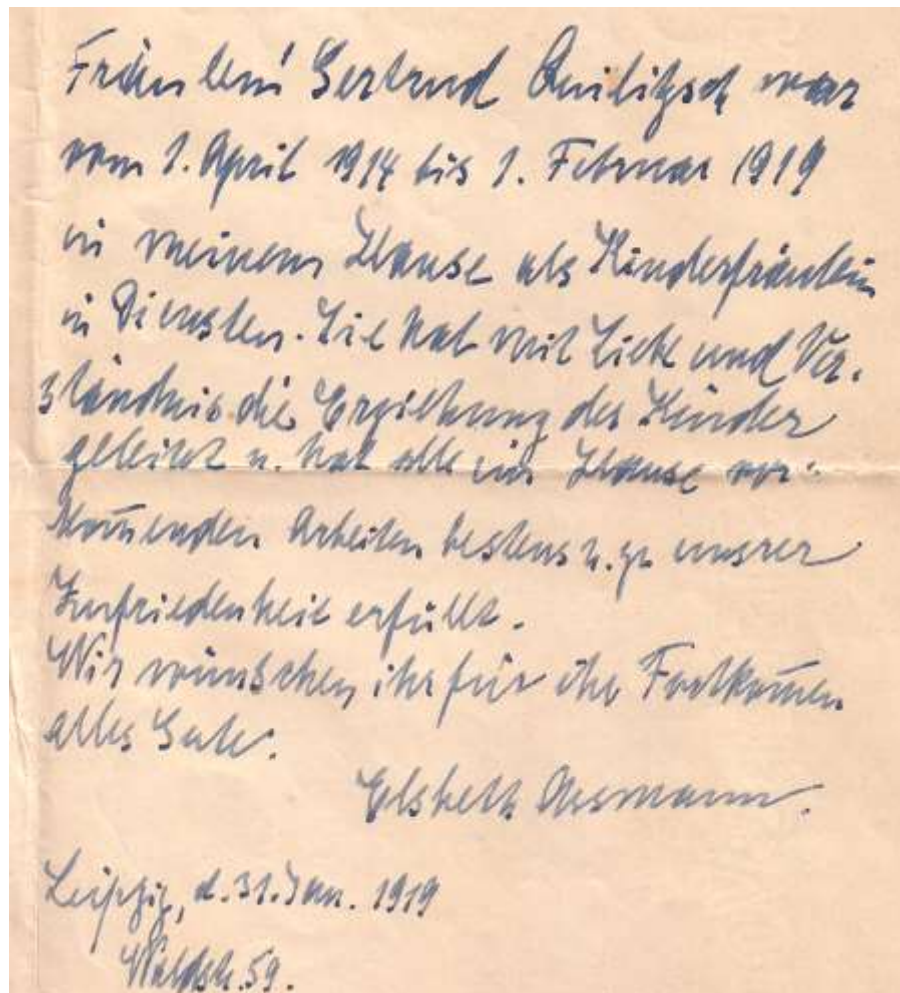 Fräulein Gertrud Quilitzsch war
vom 1. April 1914 bis 1. Februar 1919
in meinem Hause als Kinderfräulein
in Diensten. Sie hat mit Liebe und Ver-
ständnis die Erziehung der Kinder
geleitet u. hat alle im Hause vor-
kom̅enden Arbeiten bestens u. zu unsrer
Zufriedenheit erfüllt.
Wir wünschen ihr für ihr Fortkom̅en
alles Gute.
Elsbeth Assmann.
Leipzig, d. 31. Jan. 1919
Waldstr. 59.